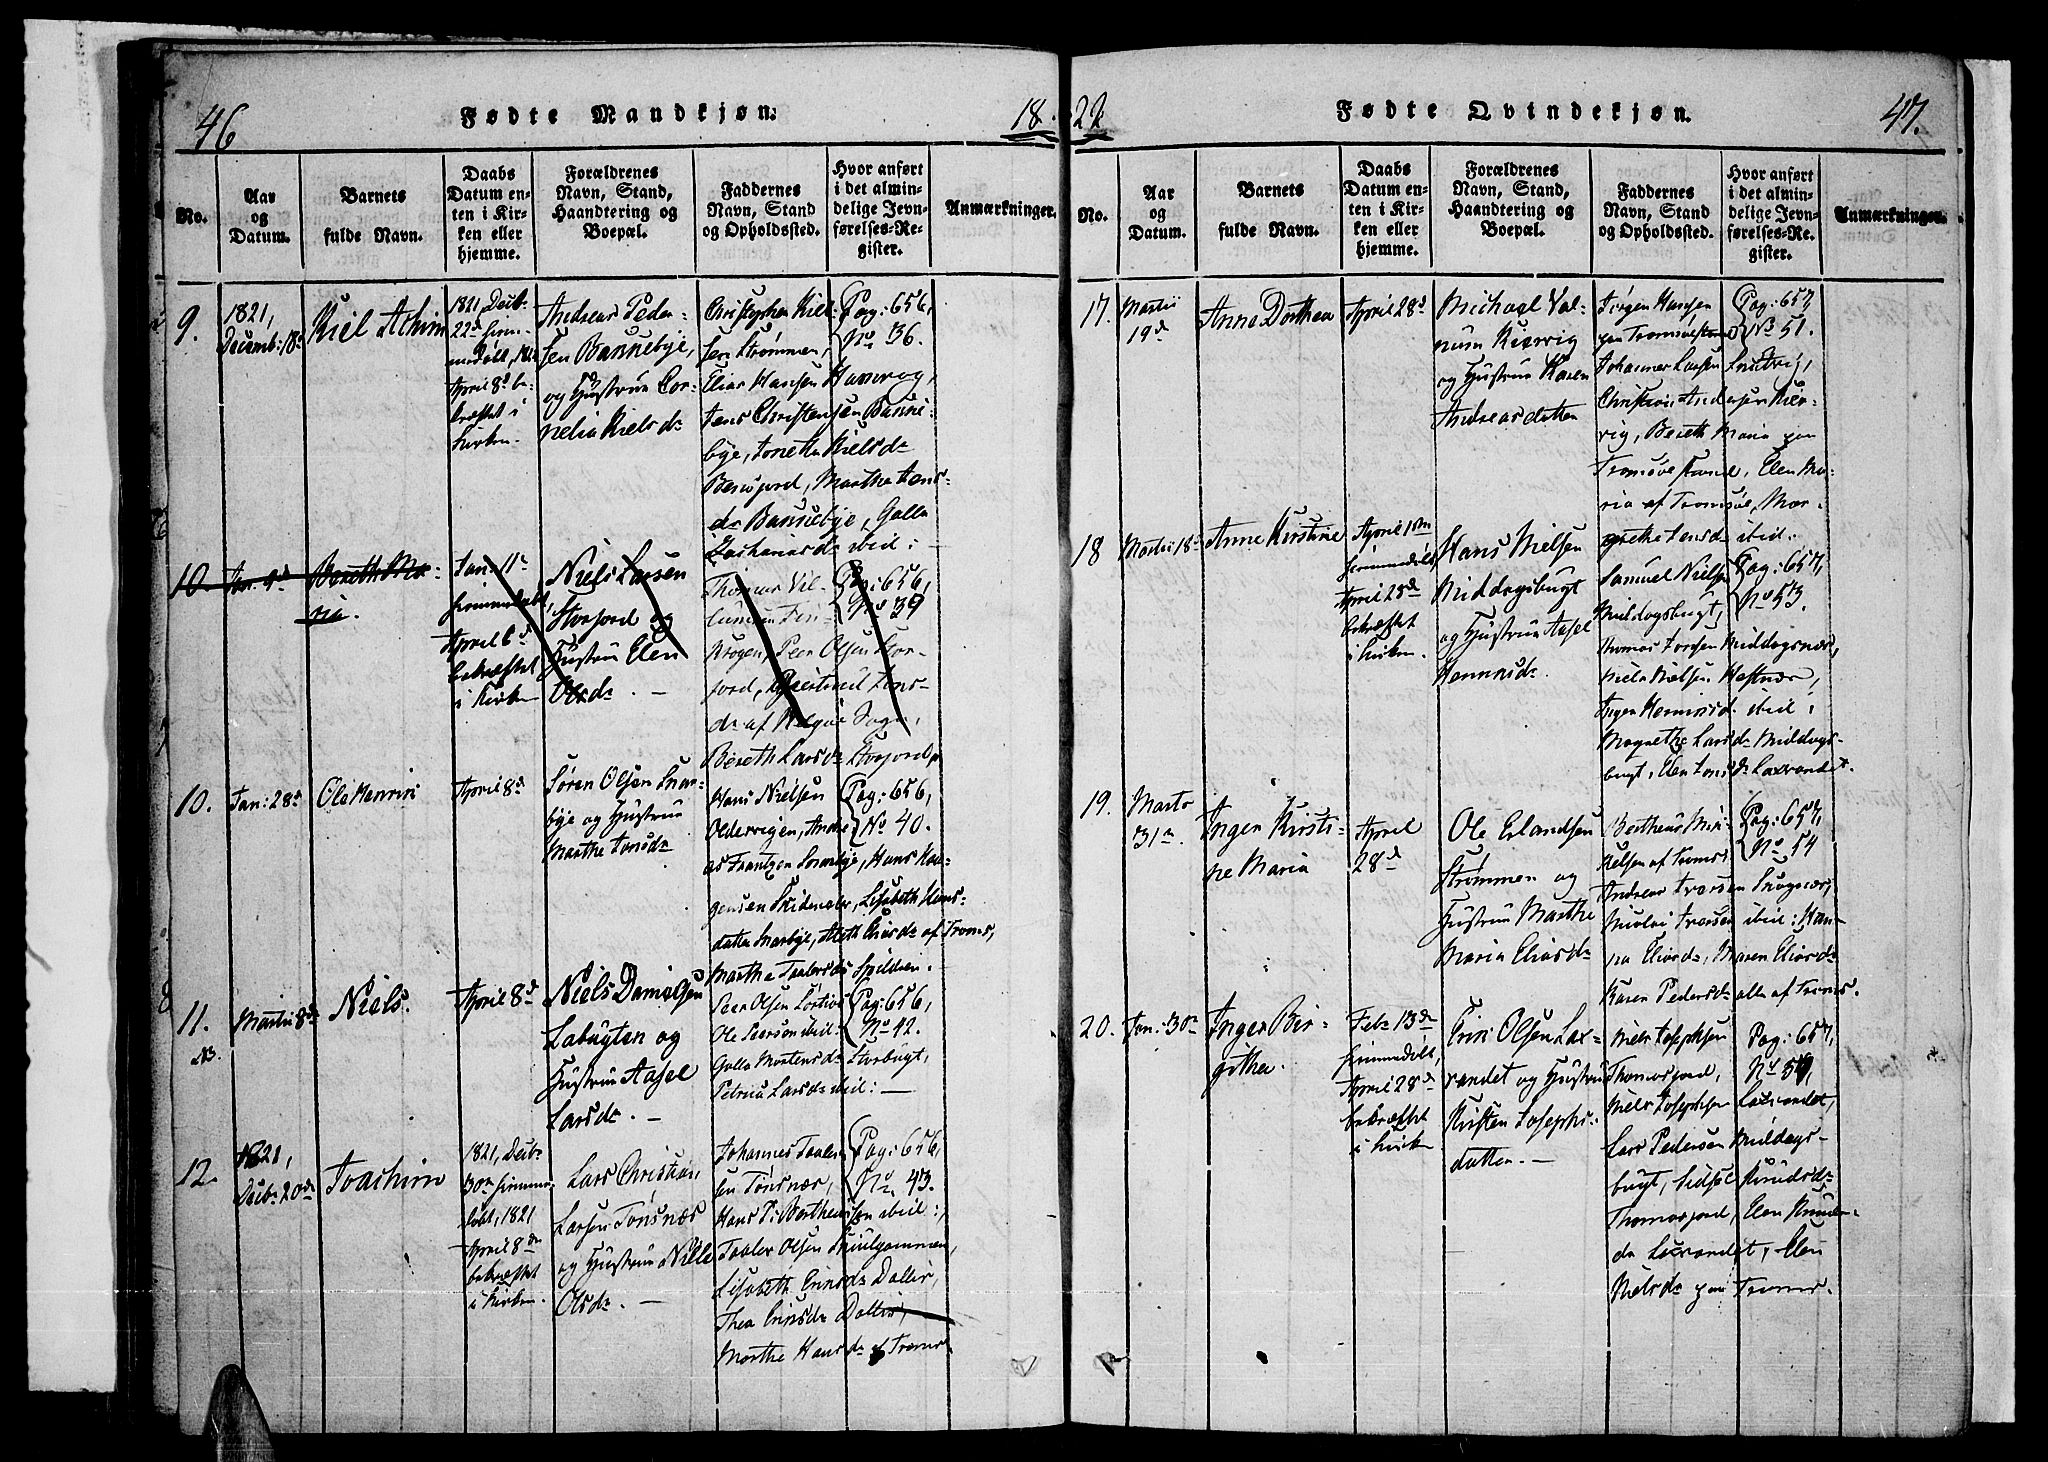 46
Fødte Mandkjøn.
18.
No.
Aar og Datum.
Barnets fulde Navn.
Daabs Datum enten i Kirken eller hjemme.
Forældrenes Navn, Stand, Haandtering og Boepæl.
Faddernes Navn, Stand og Opholdssted.
Hvor anført i det almindelige Jevnførelses-Register.
Anmærkninger.
9.
1821,
Decemb: 18de
Kiel Achim
1821, Decbr
22de
April 8de be-
kræftet i
Kirken.
Andreas Peder-
sen Bannebye,
og Hustrue Cor-
nelia Kielsdr
Christopher Kiel-
sen Strømmen,
Elias Hansen
Jens Christensen Banne-
bye, Joneth Kielsdr
Marthe Jens-
dr Bannebye, Golla
Zachariasdr ibid:
Pag: 656,
No 36.
10.
Jan: 9de
Bereth Ma-
ria.
Jan: 11te
hiemmedøbt,
April 6te
bekræftet
i Kirken
Niels Larsen
Storfjord og
Hustrue Elen
Olsdr. —
Thomas Vil-
Krogen, Peer Olsen Stor-
fjord, Jens-
dr af Sogn,
Bereth Larsdr Storfjord
Pag: 656,
No 39
10.
Jan: 28de
Ole Henrik
April 8de
Søren Olsen Snar-
bye og Hustrue
Marthe Jonsdr
Hans Nielsen
Oldervigen, Andre-
as Frantzen Snarbye, Hans Haa-
gensen Skidenelv, Lisabeth Hans-
datter Snarbye, Aleth af Troms,
Marthe Taalersdr Spildren.
Pag: 656,
No 40.
11.
NB.
Martii 8de
Niels.
April 8de
Niels Danielsen
Labugten og
Hustrue Aasel
Larsdr. —
Peer Olsen
Ole Peersen ibid:
Golla Mortensdr Storbugt,
Petrica Larsdr ibid: —
Pag: 656,
No 42.
12.
1821,
Decbr 20de
Joachim
1821, Decbr
30te hiemme-
døbt, 1821
April 8de
bekræftet
i Kirken.
Lars Christian
Larsen Tønsnæs
og Hustrue Nille
Olsdr. —
Johannes Taaler-
sen Tønsnæs,
Hans P: Berthensen ibid:,
Taaler Olsen Skulgammen,
Lisabeth Erichsdr Dalles,
Thea Erichsdr Dalles,
Marthe Hansdr af Troms.
Pag: 656,
No. 43.
22
Fødte Qvindekjøn.
47.
No.
Aar og Datum.
Barnets fulde Navn.
Daabs Datum enten i Kirken eller hjemme.
Forældrenes Navn, Stand, Haandtering og Boepæl.
Faddernes Navn, Stand og Opholdssted.
Hvor anført i det almindelige Jevnførelses-Register.
Anmærkninger.
17.
Martii
19de
Anne Dorthea
April 28de
Michael
Kiervig
og Hustrue Karen
Andreasdatter
Jørgen Hansen
paa Tromsøesund
Johannes Larsen
Christian Andersen Kier-
vig, Bereth Maria paa
Tromsøe Sund, Elen Ma-
ria af Tromsøe, Mar-
grethe Jensdr ibid.
Pag: 657,
No 51.
18
Martii 18de
Anne Kirstine
April 1ste
hiemmedøbt,
April 28de
bekræftet
i Kirken.
Hans Nielsen
Middagsbugt
og Hustrue Aasel
Hemmisdr.
Samuel Nielsen
Middagsbugt,
Thomas Joesen Middagsnæs,
Niels Nielsen Hestnæs,
Inger Hemmisdr ibid:
Magnethe Larsdr Middags-
bugt, Elen Jonsdr Laxvandet.
Pag: 657,
No 53.
19.
Marts
31te.
Inger Kirsti-
ne Maria
April
28de
Ole Erlandsen
Strømmen og
Hustrue Marthe
Maria Eliasdr
Bertheus Mik-
kelsen af Troms
Andreas Ivarsen Skogsnæs,
Nicolai Ivarsen ibid: Han-
na Eliasdr, Maren Eliasdr
Karen Pedersdr alle af Troms.
Pag: 657,
No 54
20.
Jan: 30te
Inger Bir-
githa.
Febr 13de
hiemmedøbt,
April 28de
bekræftet
i Kirken
Erik Olsen Lax-
vandet og Hustrue
Kirsten Josephs-
datter. —
Niels Josephsen
Thomasjord,
Niels Josephsen Laxvandet,
Lars Pedersen Middags-
bugt, Sidsel Knudsdr
Thomasjord, Elen Knuds-
dr Laxvandet, Elen
Nielsdr paa Troms.
Pag: 657,